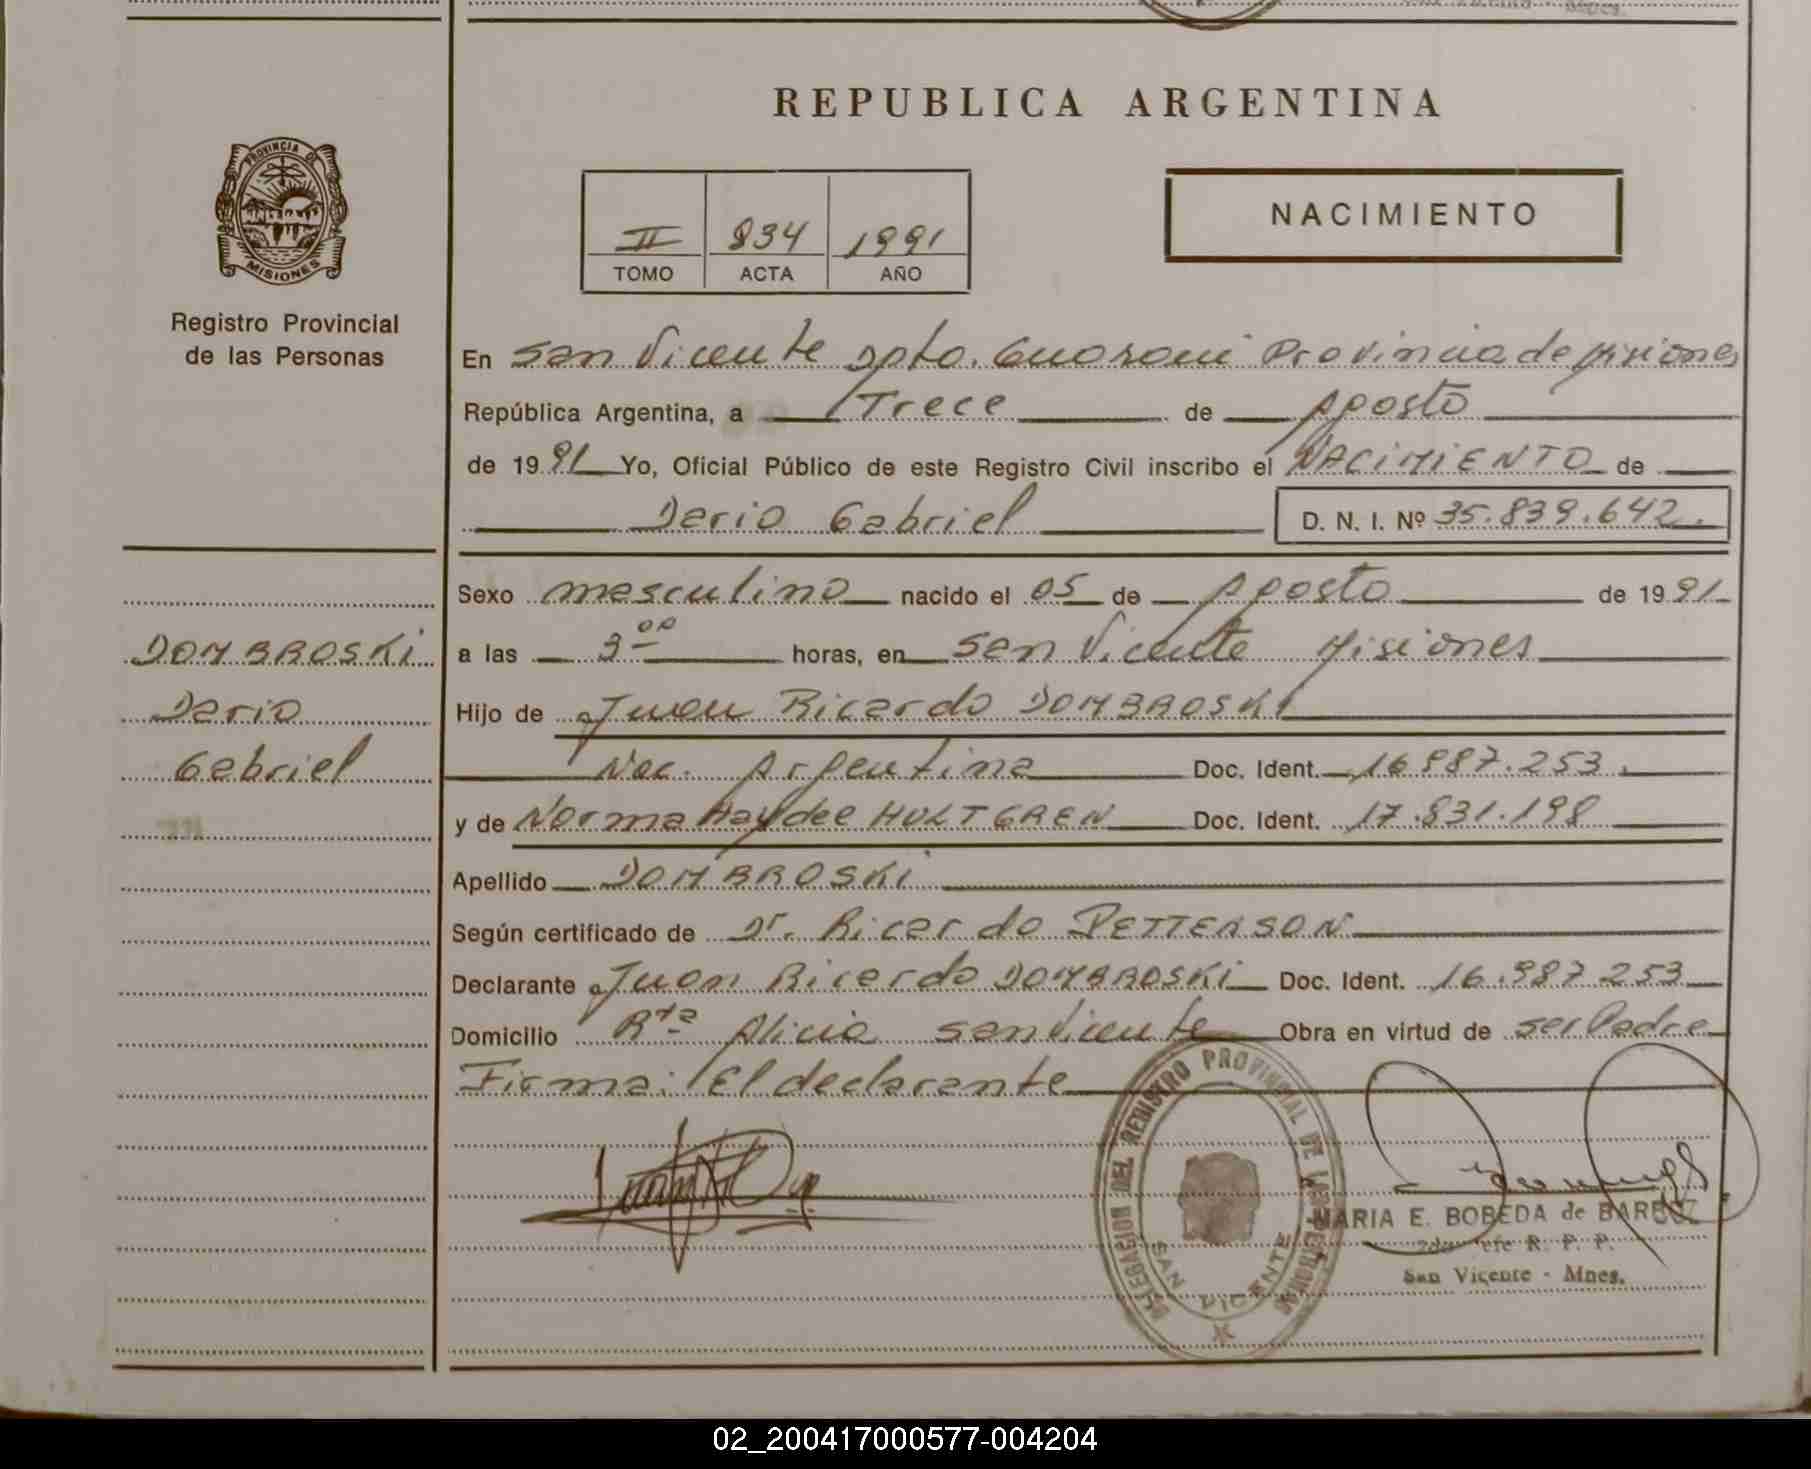 REPUBLICA ARGENTINA
PROVINCIA DE
MISIONES
Registro Provincial
de las Personas
II 834 1991
TOMO ACTA AÑO
NACIMIENTO
En San Vicente Dpto. Guarani Provincia de Misiones
República Argentina, a Trece de Agosto
de 1991 Yo, Oficial Público de este Registro Civil inscribo el NACIMIENTO de
Dario Gabriel D. N. I. Nº 35.839.642.
Sexo masculino nacido el 05 de Agosto de 1991
a las 3 00 horas, en San Vicente Misiones
Hijo de Juan Ricardo DOMBROSKI
Nac. Argentina Doc. Ident. 16.987.253.
y de Norma Haydee HULTGREN Doc. Ident. 17.831.198
Apellido DOMBROSKI
Según certificado de Dr. Ricardo PETTERSON
Declarante Juan Ricardo DOMBROSKI Doc. Ident. 16.987.253
Domicilio Rta Alicia San Vicente Obra en virtud de ser Padre
Firma: El declarante
DOMBROSKI
Dario
Gabriel
DELEGACION DEL REGISTRO PROVINCIAL DE LAS PERSONAS
SAN VICENTE
MARIA E. BOBEDA de
R. P. P.
San Vicente - Mnes.
02_200417000577-004204